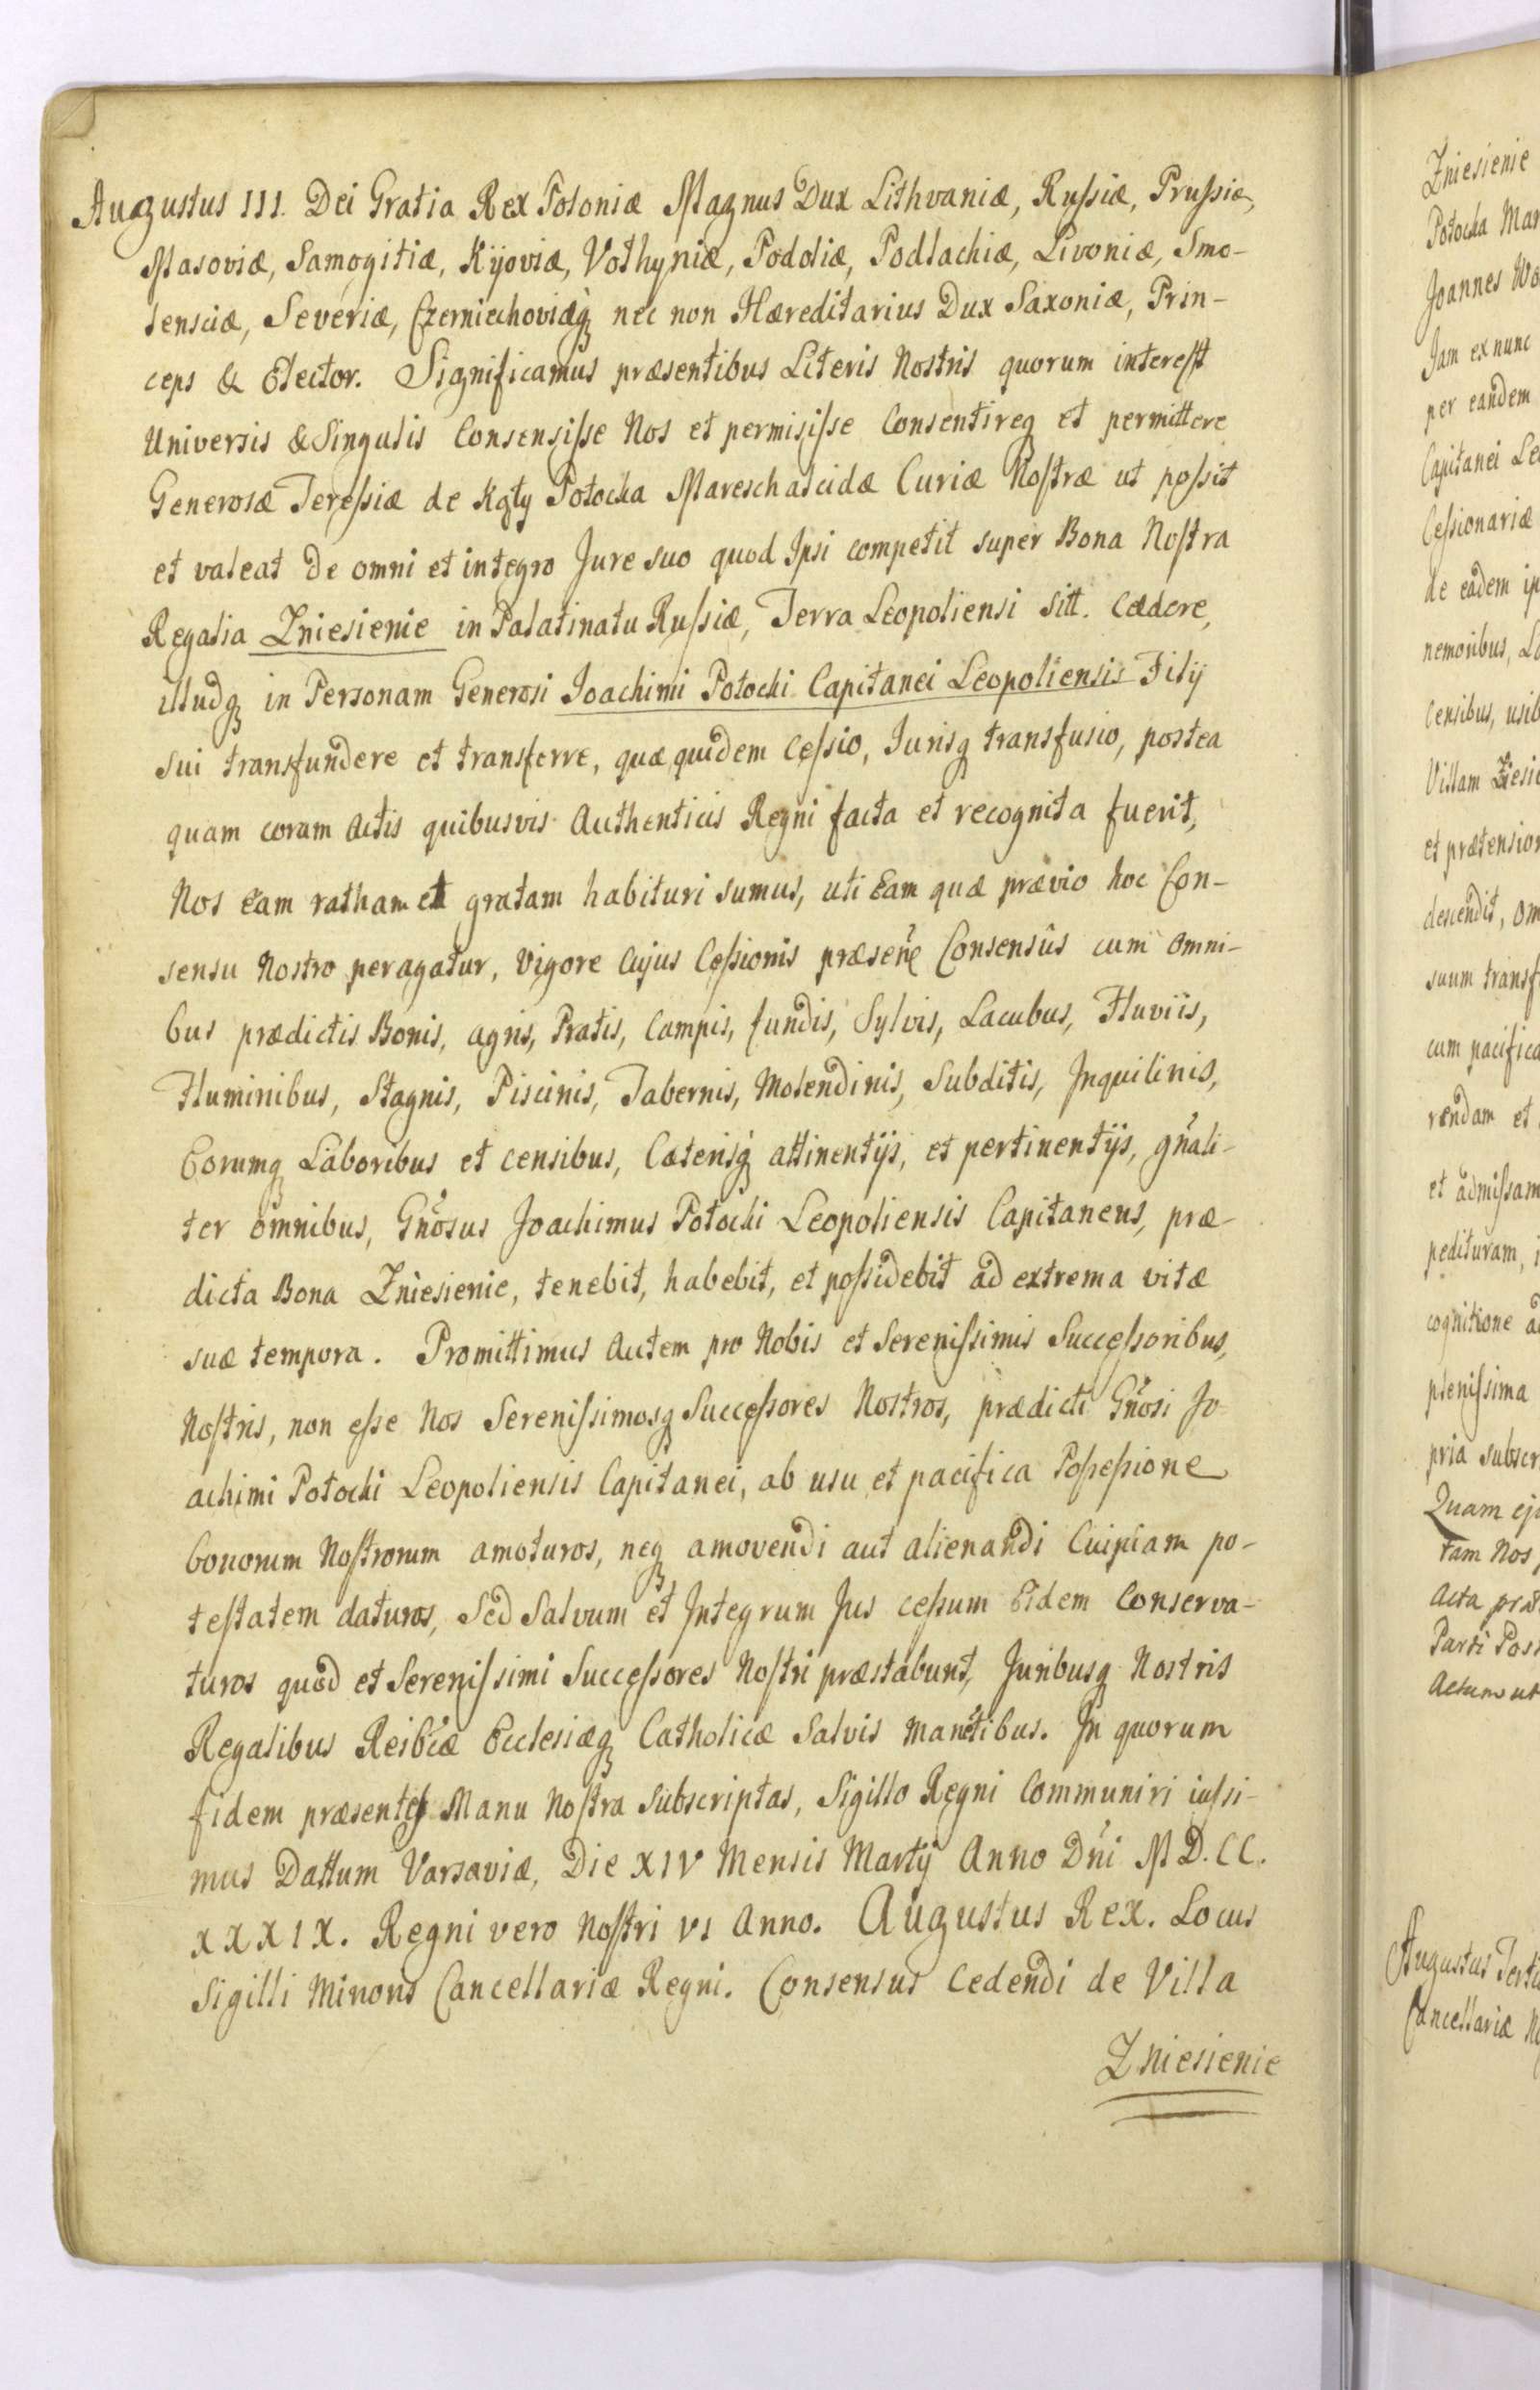 Augustus III. Dei Gratia Rex Poloniæ Magnus Dux Lithvaniæ, Ruſsiæ, Pruſsiæ,
Masoviæ, Samogitiæ, Kijoviæ, Volhyniæ, Podoliæ, Podlachiæ, Livoniæ, Smo-
lensciæ, Severiæ, Czerniechoviæq; nec non Hæreditarius Dux Saxoniæ, Prin-
ceps & Elector. Significamus præsentibus Literis Nostris quorum intereſt
Universis & Singulis Consensiſse Nos et permisiſse Consentireq; et permittere
Generosæ Tereſsiæ de Kąty Potocka Mareschalcidæ Curiæ Noſtræ ut poſsit
et valeat de omni et integro Jure suo quod Ipsi competit super Bona Noſtra
Regalia Zniesienie in Palatinatu Ruſsiæ, Terra Leopoliensi sitt. Cædere,
illudq; in Personam Generosi Joachimi Potocki Capitanei Leopoliensis Filij
sui transfundere et transferre, quæ quidem Ceſsio, Jurisq; transfusio, postea
quam coram Actis quibusvis Authenticis Regni facta et recognita fuerit,
Nos Eam ratham et gratam habituri sumus, uti Eam quæ prævio hoc Con-
sensu Nostro peragatur, Vigore Cujus Ceſsionis præseñe Consensûs cum omni-
bus prædictis Bonis, agris, Pratis, Campis, fundis, Sylvis, Lacubus, Fluviis,
Fluminibus, Stagnis, Piscinis, Tabernis, Molendinis, Subditis, Inquilinis,
Eorumq; Laboribus et censibus, Cæterisq; attinentijs, et pertinentijs, gñali-
ter omnibus, Gñosus Joachimus Potocki Leopoliensis Capitaneus, præ-
dicta Bona Zniesienie, tenebit, habebit, et poſsidebit ad extrema vitæ
suæ tempora. Promittimus Autem pro Nobis et Sereniſsimis Succeſsoribus,
Noſtris, non eſse Nos Sereniſsimosq; Succeſsores Nostros, prædicti Gñosi Jo
achimi Potocki Leopoliensis Capitanei, ab usu et pacifica Poſseſsione
bonorum Noſtrorum amoturos, neq; amovendi aut alienandi Cuipiam po-
teſtatem daturos, Sed Salvum et Integrum Jus ceſsum Eidem Conserva-
turos quod et Sereniſsimi Succeſsores Noſtri præstabunt, Juribusq; Nostris
Regalibus Reibcæ Ecclesiæq; Catholicæ Salvis manẽtibus. In quorum
fidem præsentes Manu Noſtra Subscriptas, Sigillo Regni Communiri iuſsi-
mus Dattum Varsaviæ, Die XIV Mensis Martij Anno Dñi M D. CC.
XXXIX. Regni vero Noſtri VI Anno. Augustus Rex. Locus
Sigilli Minoris Cancellariæ Regni. Consensus Cedendi de Villa
Zniesienie
Zniesienie
Potocka Mar
Joannes Wo
Jam ex nunc
per eandem
Capitanei Le
Ceſsionariæ
de eadem ip
nemoribus, La
Censibus, usib
Villam
et prætension
descendit, om
suum transf
cum pacifica
rendam et
et admiſsam
pedituram, i
cognitione a
pleniſsima
pria subscr
Quam ej
tam Nos,
Acta præ
Parti Pos
Actum ut
Augustus Terti
Cancellariæ No